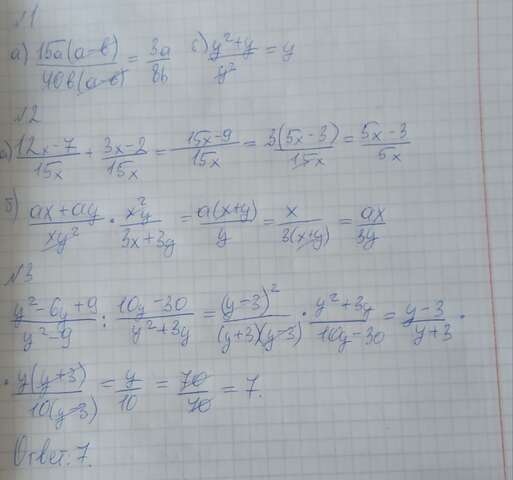 №1
а) 15a(a-b)/40b(a-b) = 3a/8b с) y²+y/y² = y
№2
а) 12x-7/15x + 3x-2/15x = 15x-9/15x = 3(5x-3)/15x = 5x-3/5x
б) ax+ay/xy² · x²y/3x+3y = a(x+y)/y = x/3(x+y) = ax/3y
№3
y²-6y+9/y²-9 : 10y-30/y²+3y = (y-3)²/(y+3)(y-3) · y²+3y/10y-30 = y-3/y+3 ·
· y(y+3)/10(y-3) = y/10 = 70/70 = 7.
Ответ: 7.